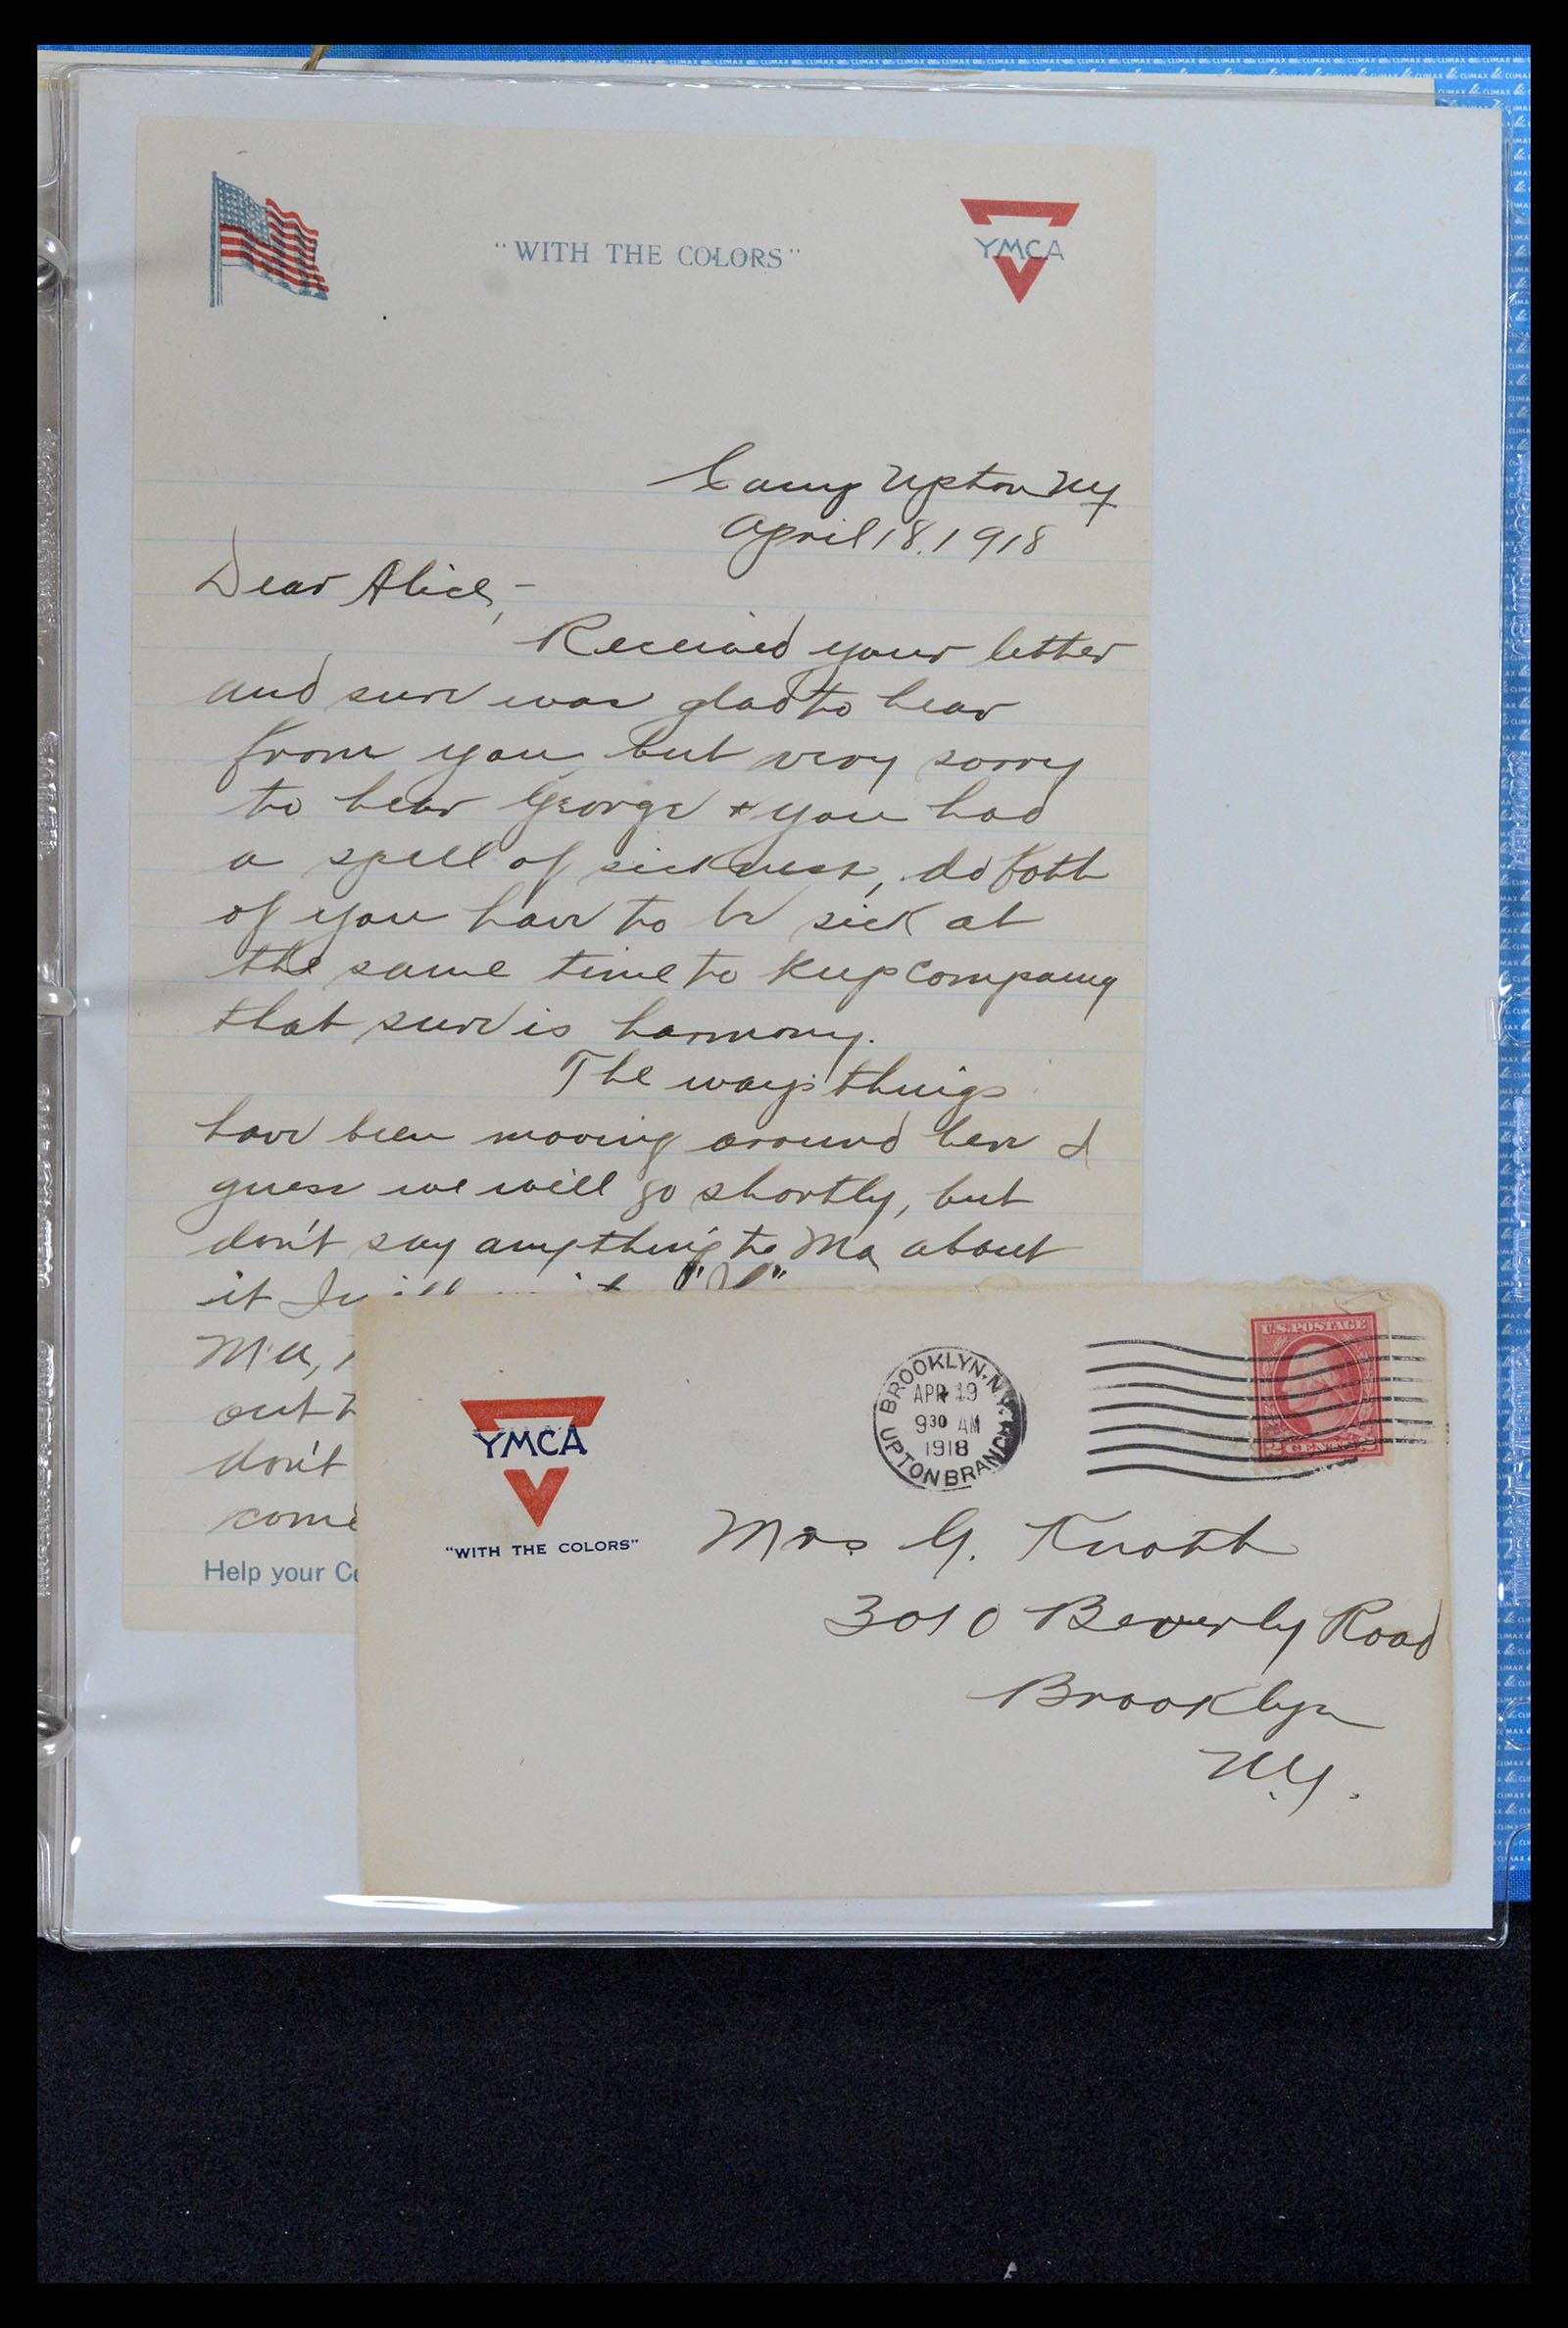 "WITH THE COLORS"
YMCA
Camp Upton NY
April 18. 1918
Dear Alice,-
Received your letter
and sure was glad to hear
from you but very sorry
to hear George & you had
a spell of sickness, do both
of you have to be sick at
the same time to keep company
that sure is harmony.
The ways things
have been moving around here I
guess we will go shortly, but
don't say anything to Ma about
it I
Ma,
out
don't
come
Help your
YMCA
"WITH THE COLORS"
BROOKLYN, N.Y.
APR 19
930 AM
1918
UPTON BRANCH
U.S. POSTAGE
2 CENTS 2
Mrs G. Knott
3010 Beverly Road
Brooklyn
N.Y.
CLIMAX